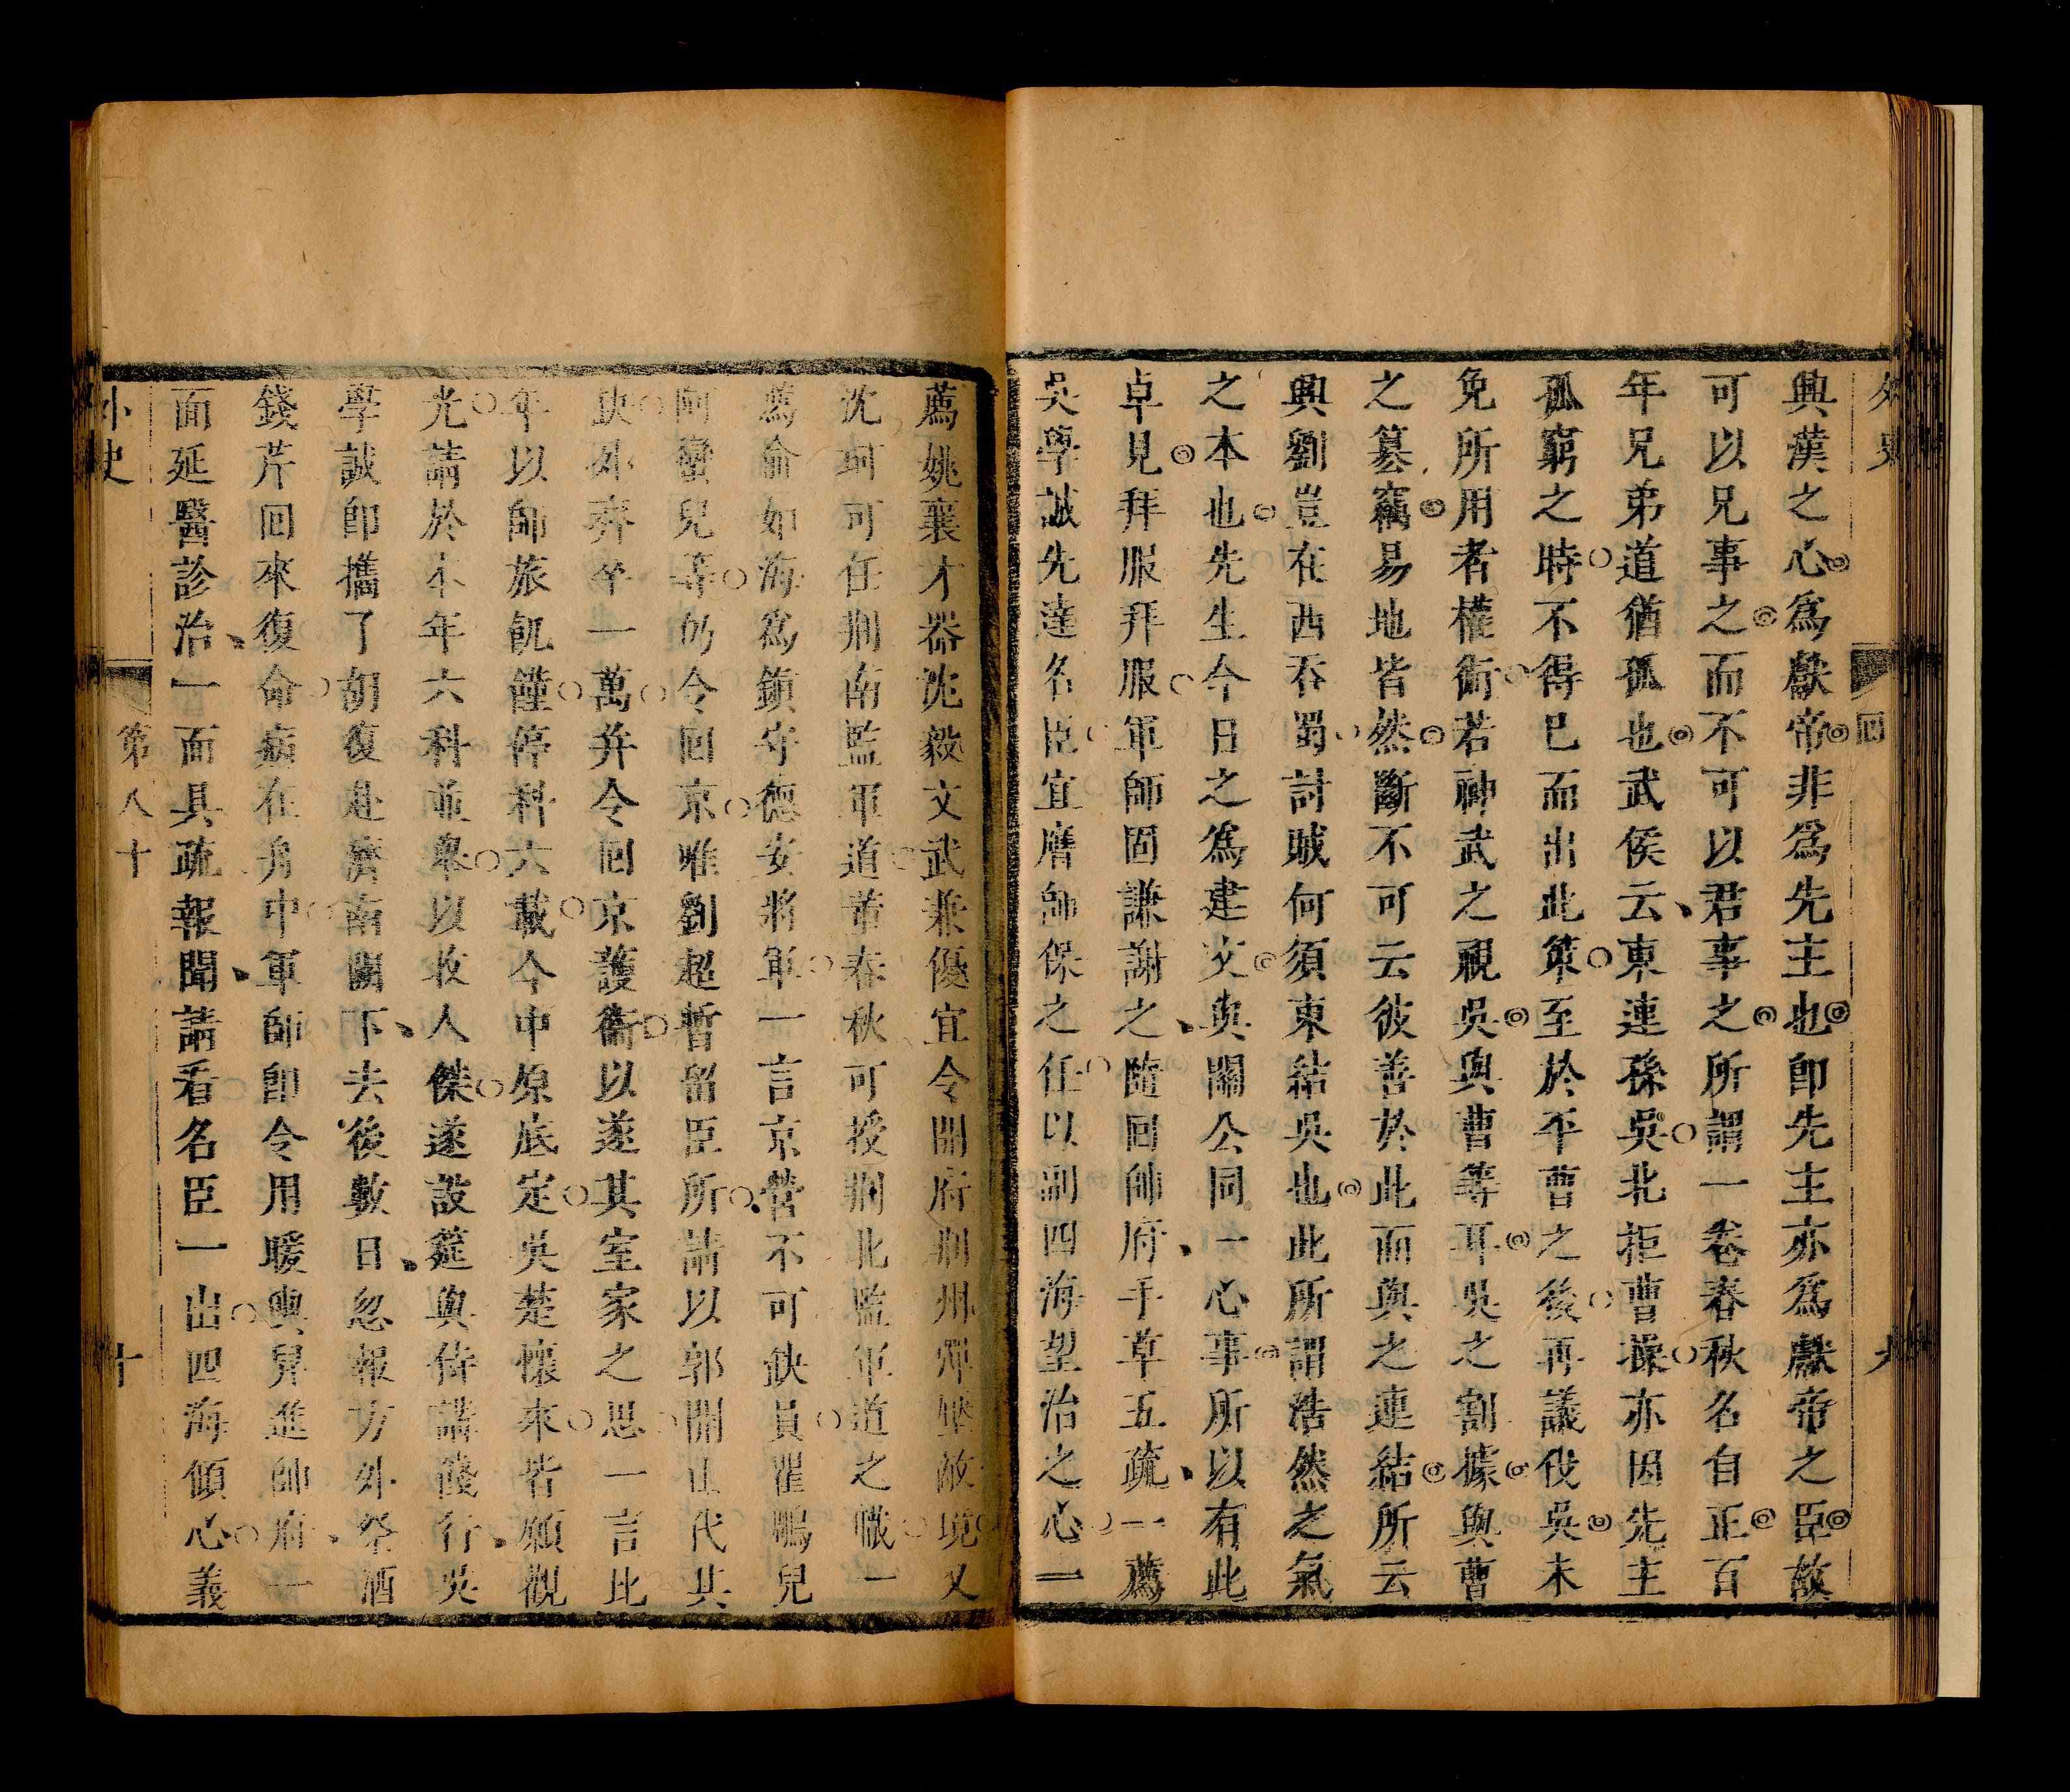 外史
回
九
興漢之心爲獻帝非爲先主也卽先主亦爲獻帝之臣故
可以兄事之而不可以君事之所謂一卷春秋名自正百
年兄弟道猶孤也武侯云東連孫吳北拒曹操亦因先主
孤窮之時不得已而出此策至於平曹之後再議伐吳未
免所用者權術若神武之視吳與曹等耳吳之割據與曹
之篡竊易地皆然斷不可云彼善於此而與之連結所云
興劉豈在西吞蜀討賊何須東結吳也此所謂浩然之氣
之本也先生今日之爲建文與關公同一心事所以有此
卓見拜服拜服軍師固謙謝之隨回帥府手草五疏一薦
吳學誠先達名臣宜膺師保之任以副四海望治之心一
薦姚襄才器沈毅文武兼優宜令開府荆州彈壓敵境又
沈珂可任荆南監軍道董春秋可授荆北監軍道之職一
薦俞如海爲鎮守德安將軍一言京營不可缺員瞿鵰兒
阿蠻兒等仍令回京唯劉超暫留臣所請以郭開山代其
缺外齊卒一萬并令回京護衞以遂其室家之思一言比
年以師旅飢饉停科六載今中原底定吳楚懷來皆願觀
光請於本年六科並舉以收人傑遂設筵與侍講餞行吳
學誠卽攜了胡復赴濟南闕下去後數日忽報方外祭酒
錢芹回來復命病在舟中軍師卽令用暖輿舁進帥府一
面延醫診治一面具疏報聞請看名臣一出四海傾心義
外史
第八十
十